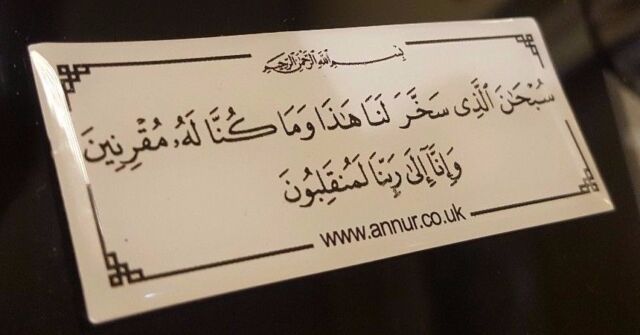 بِسْمِ اللهِ الرَّحْمٰنِ الرَّحِيْمِ
سُبْحَانَ الَّذِى سَخَّرَ لَنَا هَٰذَا وَمَا كُنَّا لَهُ مُقْرِنِينَ
وَإِنَّآ إِلَىٰ رَبِّنَا لَمُنْقَلِبُونَ
www.annur.co.uk